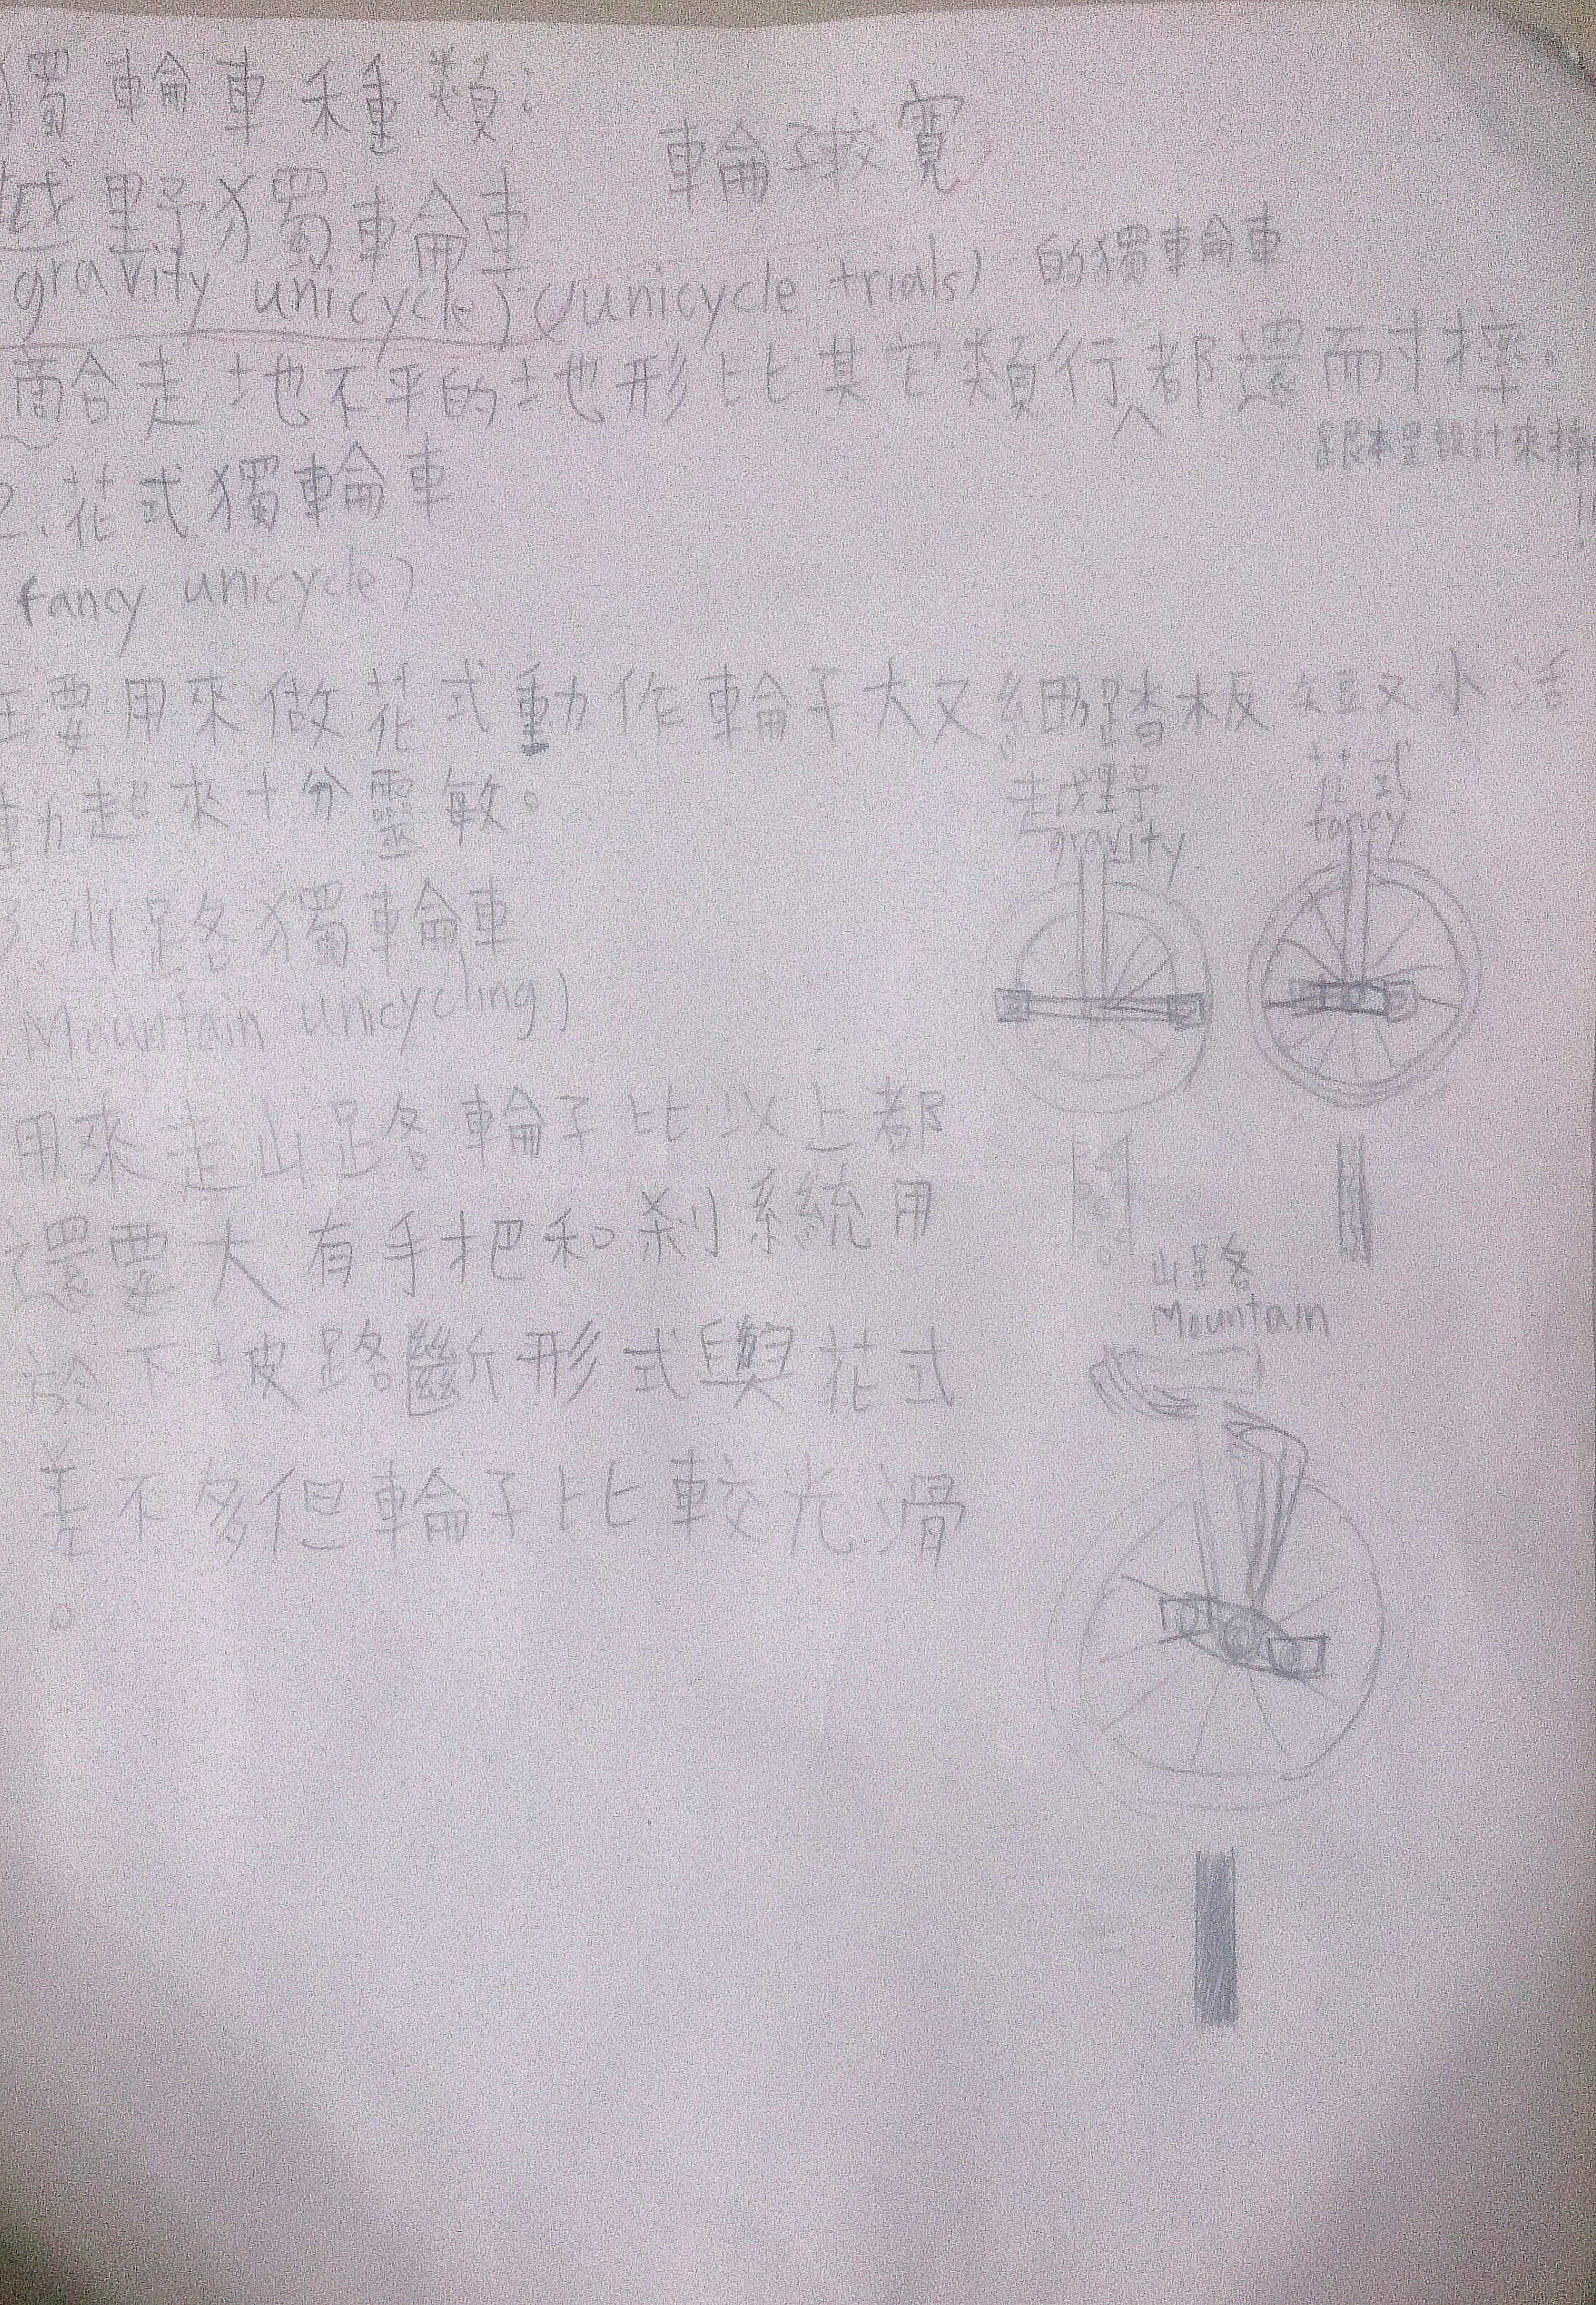 獨輪車種類:
輪較寬
越野獨輪車
gravity unicycle) (unicycle trials) 的獨輪車
適合走地不平的地形比其它類行都還耐摔.
跟本是設計來摔
2.花式獨輪車
fancy unicycle)
主要用來做花式動作輪子大又細踏板短又小活
動起來十分靈敏。
越野
gravity
花式
fancy
山路獨輪車
Mountain unicycling)
用來走山路輪子比以上都
還要大有手把和剎系統用
於下坡路斷形式與花式
差不多但輪子比較光滑
。
山路
Mountain